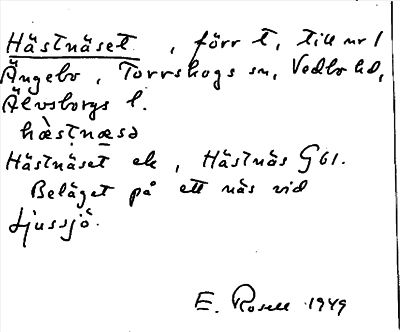 Hästnäset, förr t, till nr 1
Ängebo, Torrskogs sn, Vedbo hd,
Älvsborgs l.
hæ̀stnæsə
Hästnäset ek, Hästnäs G61.
Beläget på ett näs vid
Ljussjö.
E. Rosell 1949